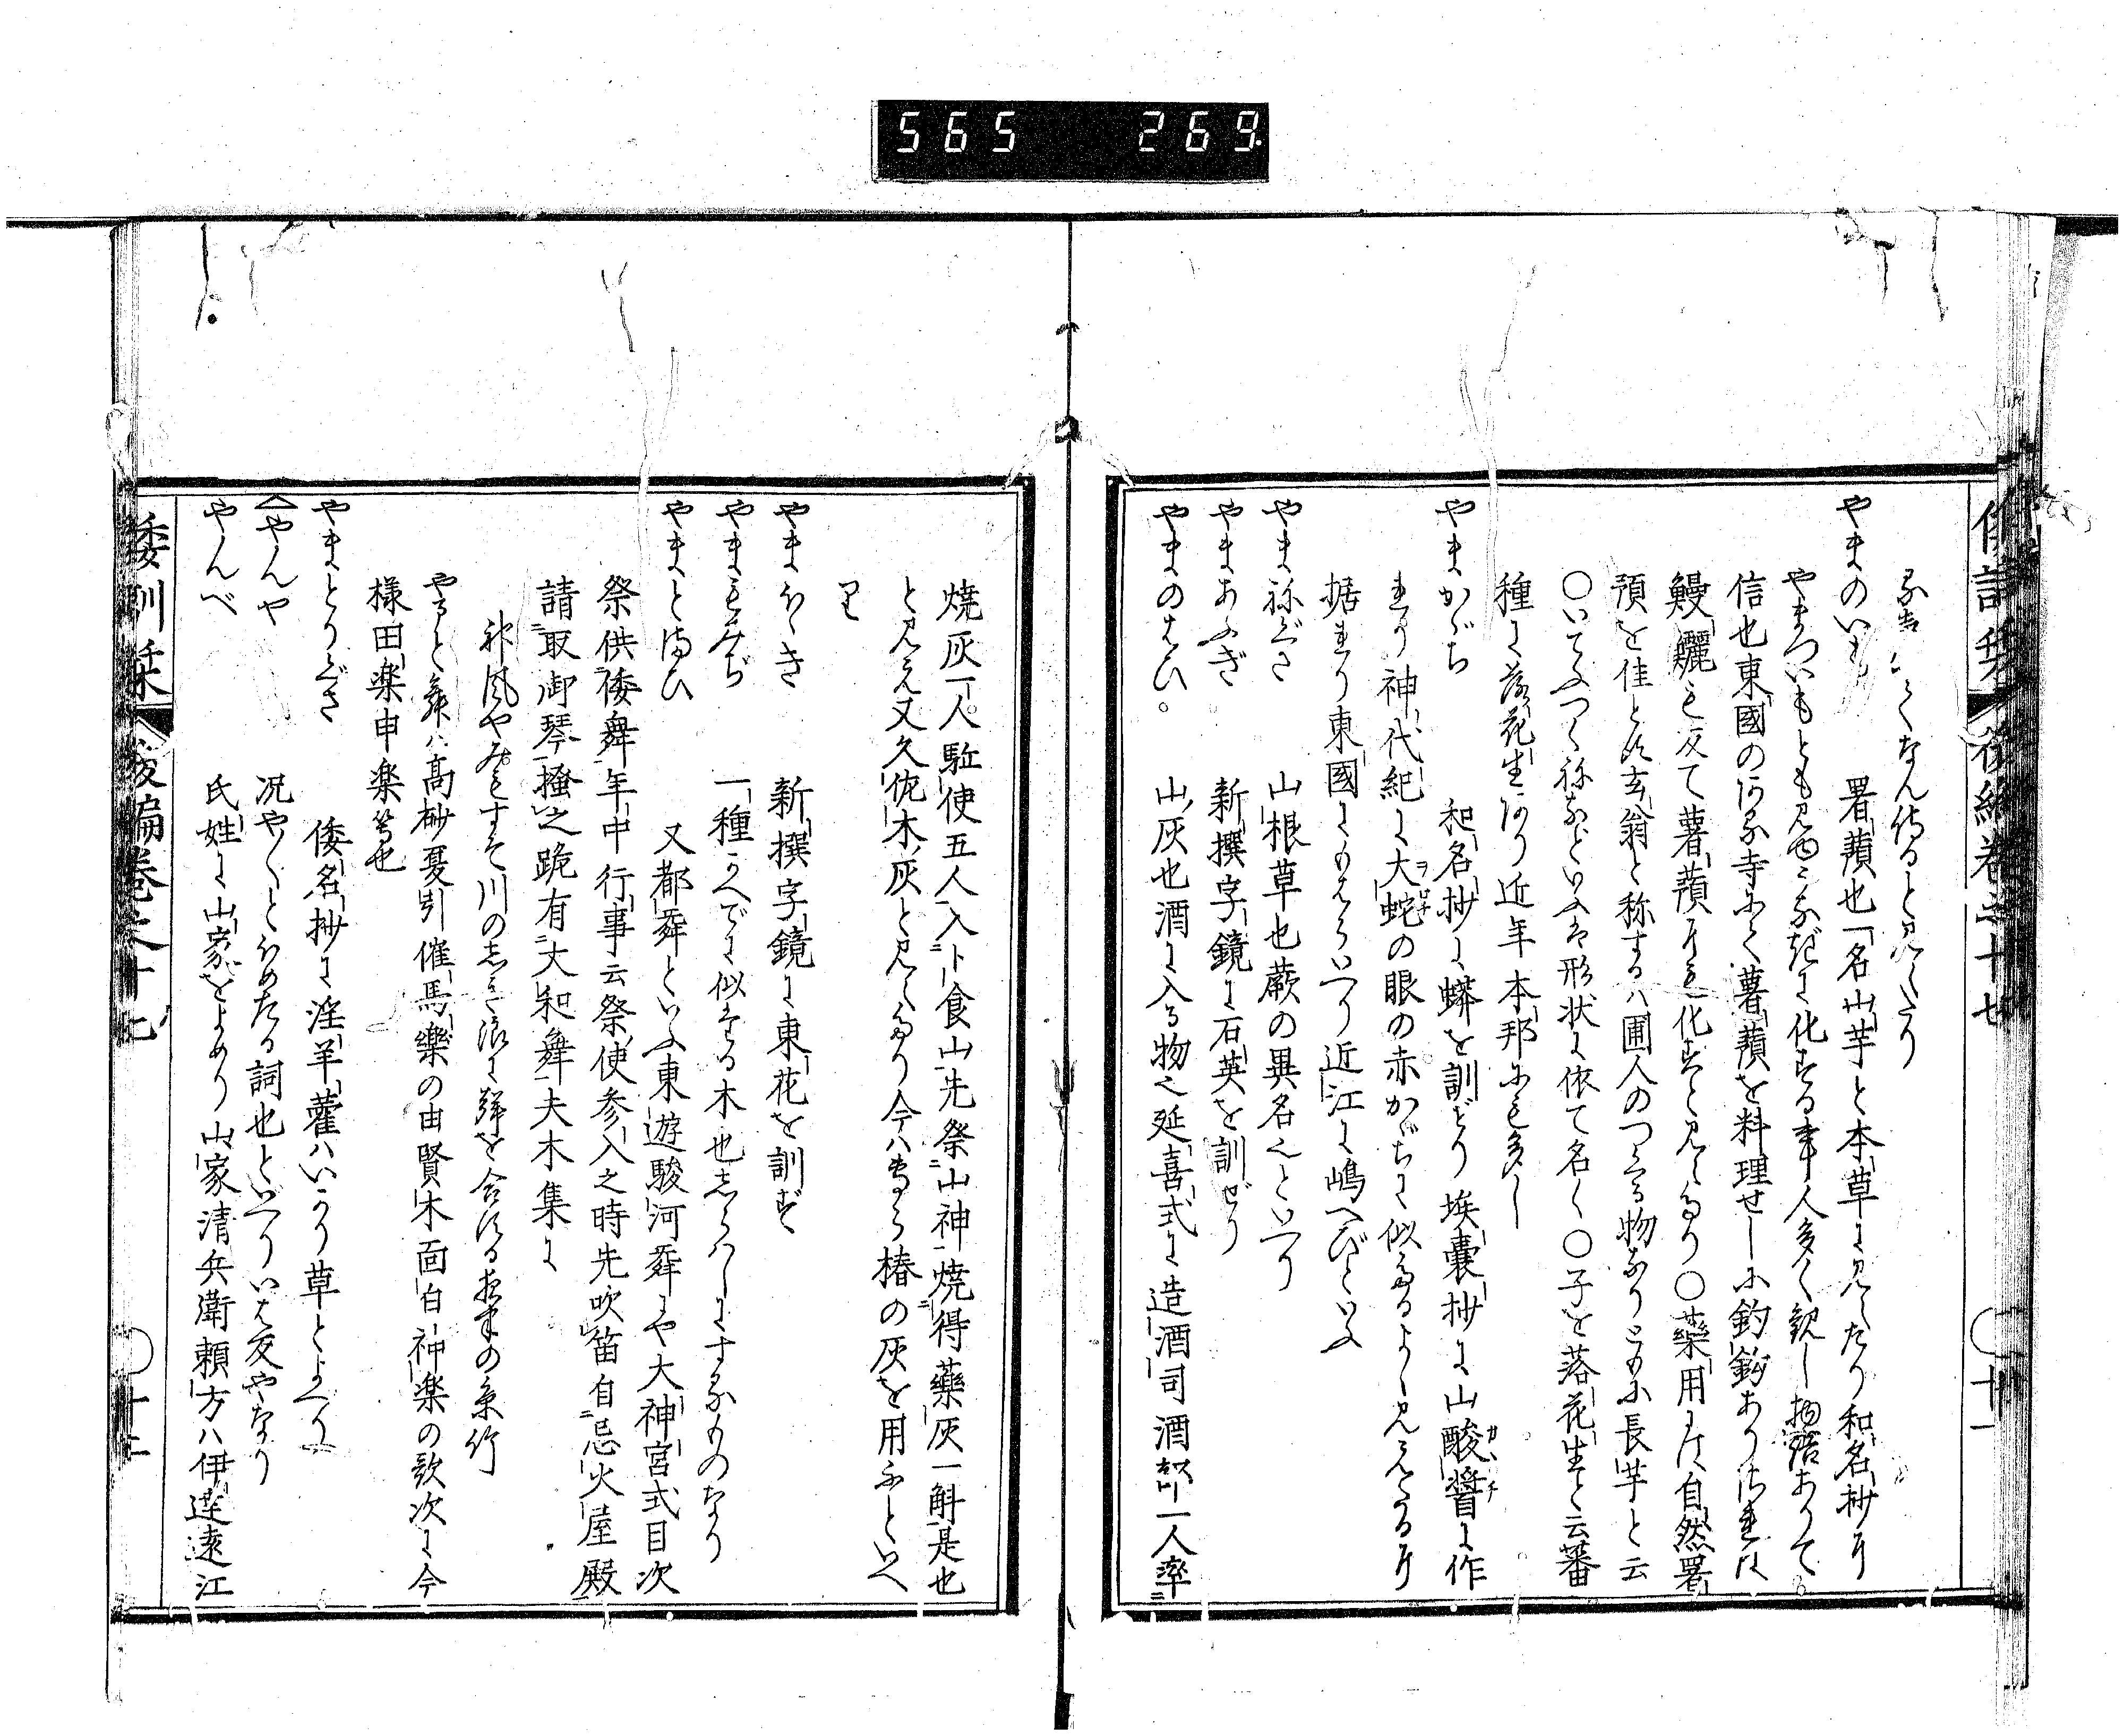 565 269
倭訓栞 後編巻之十七 ○十一
くなん侍ると見えたり
やまのいも 署蕷也一名山芋と本草に見えたり和名抄に
やまついもとも見ゆこれうなぎに化する事人多く親し物語ありて
信也東國の何る寺にて薯蕷を料理せしに釣鈎ありけれは
鰻鱺も反て薯蕷にも化すと見えたり○藥用には自然署
預を佳とす玄翁と称するハ圃人のつくる物なりともに長芋と云
○いてふつくねなどいふは形状に依て名く○子を落花生と云蕃
種に落花生あり近年本邦にも多し
やまかゞち 和名抄に蟒を訓どり埃嚢抄に山酸醤に作
れり神代紀に大蛇の眼の赤かゞちに似たるよし見えたるに
据れり東國にもしかいへり近江に嶋へびといふ
やまねぐさ 山根草也蕨の異名也といへり
やまあふぎ 新撰字鏡に石英を訓ぜり
やまのはひ 山灰也酒に入る物也延喜式に造酒司酒部一人率
燒灰一人駈使五人入卜食山先祭山神燒得藥灰一斛是也
と見え又久佗木灰と見えたり今ハ専ら椿の灰を用ふといへ
り
やまほゝき 新撰字鏡に東花を訓ず
やまもみぢ 一種かへでに似たる木也しらハしにするものなり
やまとまひ 又都舞といふ東遊駿河舞にや大神宮式目次
祭供倭舞年中行事云祭使参入之時先吹笛自忌火屋殿
請取御琴搔之跪有大和舞夫木集に
神風やみもすそ川のしき浪に聲を合する拍子の糸竹
やまと舞ハ高砂夏引催馬樂の由賢木面白神楽の歌次に今
様田楽申楽等也
やまとりぐさ 倭名抄に淫羊藿ハいかり草とよへり
へやんや 况やくとほめたる詞也といへりいは反やなり
やんべ 氏姓に山家をよめり山家清兵衛頼方ハ伊達遠江
倭訓栞 後編巻之十七 ○十二